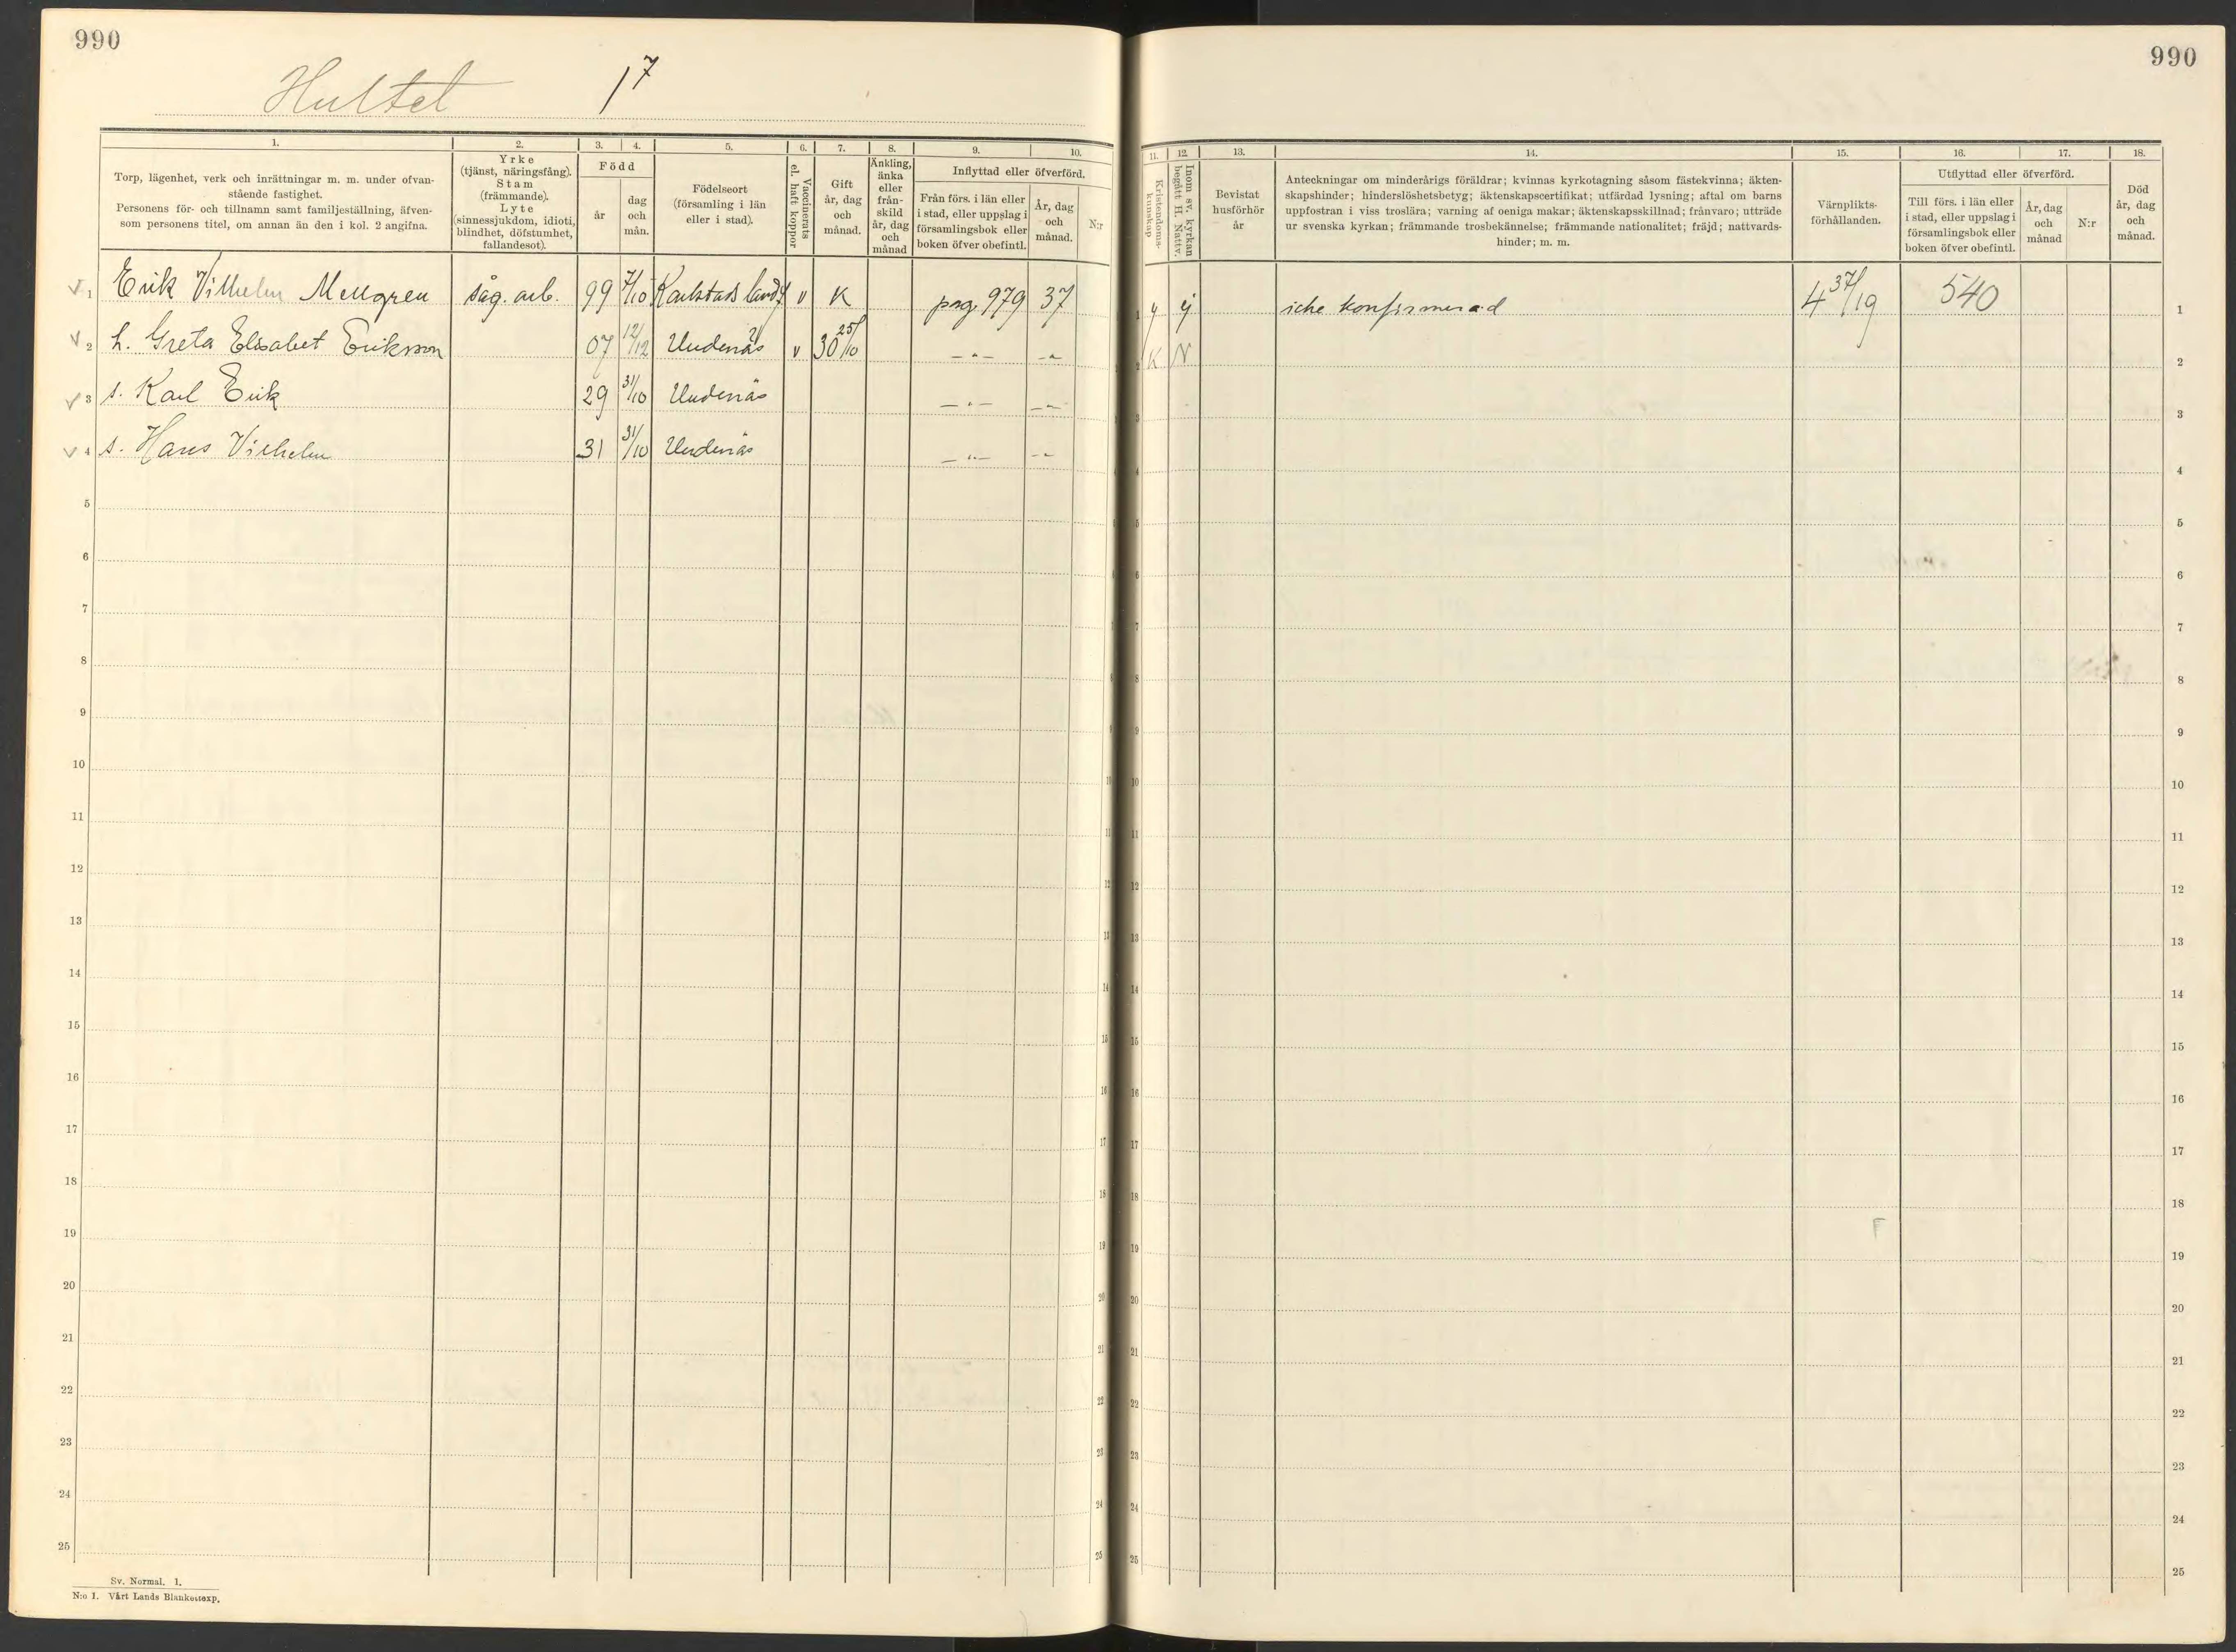 990
990
Hultet 17
1. 2. 3. 4. 5. 6. 7. 8. 9. 10.
Torp, lägenhet, verk och inrättningar m. m. under ofvan-
stående fastighet.
Personens för- och tillnamn samt familjeställning, äfven-
som personens titel, om annan än den i kol. 2 angifna.
Yrke
(tjänst, näringsfång).
Stam
(främmande).
Lyte
(sinnessjukdom, idioti,
blindhet, döfstumhet,
fallandesot).
Född
år
dag
och
mån.
Födelseort
(församling i län
eller i stad).
Vaccinerats
el. haft koppor
Gift
år, dag
och
månad.
Änkling,
änka
eller
från-
skild
år, dag
och
månad
Inflyttad eller öfverförd.
Från förs. i län eller
i stad, eller uppslag i
församlingsbok eller
boken öfver obefintl.
År, dag
och
månad.
N:r
11. 12. 13. 14. 15. 16. 17. 18.
Kristendoms-
kunskap
Inom sv. kyrkan
begått H. Nattv.
Bevistat
husförhör
år
Anteckningar om minderårigs föräldrar; kvinnas kyrkotagning såsom fästekvinna; äkten-
skapshinder; hinderslöshetsbetyg; äktenskapscertifikat; utfärdad lysning; aftal om barns
uppfostran i viss troslära; varning af oeniga makar; äktenskapsskillnad; frånvaro; utträde
ur svenska kyrkan; främmande trosbekännelse; främmande nationalitet; fräjd; nattvards-
hinder; m. m.
Värnplikts-
förhållanden.
Utflyttad eller öfverförd.
Till förs. i län eller
i stad, eller uppslag i
församlingsbok eller
boken öfver obefintl.
År, dag
och
månad
N:r
Död
år, dag
och
månad.
1 Erik Vilhelm Mellgren såg. arb. 99 7/10 Karlstads landsf v K pag 979 37 icke konfirmerad 4 37/19 540 1
2 h. Greta Elisabet Eriksson 07 12/12 Undenäs v 30 25/10 -"- -"- K N 2
3 s. Karl Erik 29 31/10 Undenäs -"- -"- 3
4 s. Hans Vilhelm 31 31/10 Undenäs -"- -"- 4
5 5
6 6
7 7
8 8
9 9
10 10
11 11
12 12
13 13
14 14
15 15
16 16
17 17
18 18
19 19
20 20
21 21
22 22
23 23
24 24
25 25
Sv. Normal. 1.
N:o 1. Vårt Lands Blankettexp.